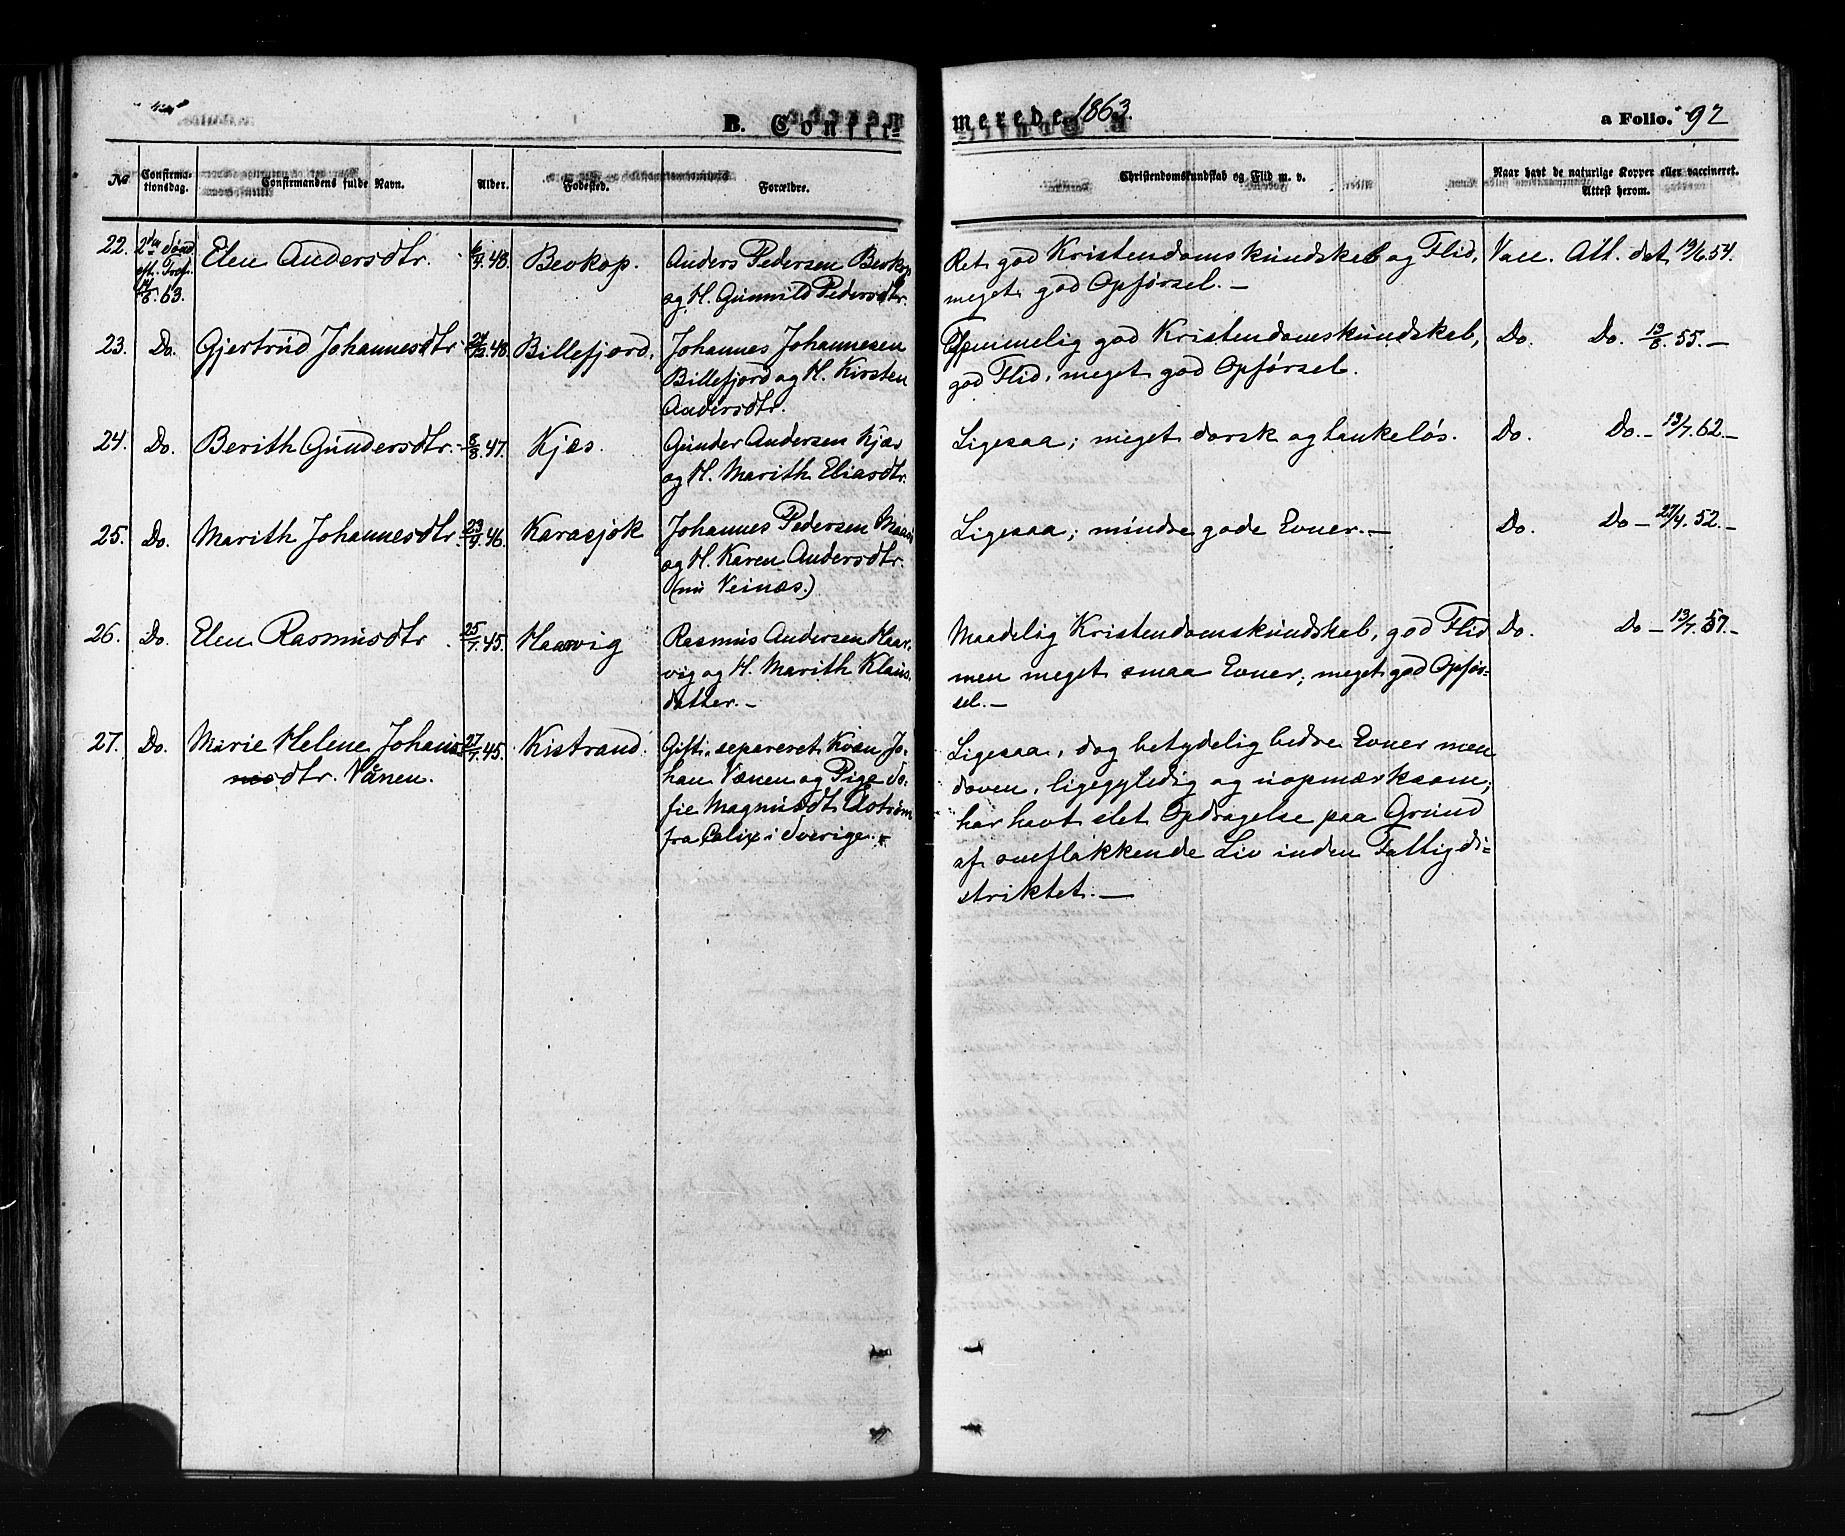 B. Confir-
merede 1863.
a Folio. 92
No
Confirma-
tionsdag.
Confirmandens fulde Navn.
Alder.
Fødested.
Forældre.
Christendomskundskab og Flid m. v.
Naar havt de naturlige Kopper eller vaccineret.
Attest herom.
22. 2den Sønd.
eft. Tref.
14/6. 63.
Elen Andersdtr. 48. Bevkop.
Anders Pedersen Bevkop
og H. Gunnild Pedersdtr.
Ret god Kristendomskundskab og Flid,
meget god Opførsel. —
Vacc. Att. dat 19/6.54.
23. Do. Gjertrud Johannesdtr 48. Billefjord.
Johannes Johannesen
Billefjord og H. Kirsten
Andersdtr.
Temmelig god Kristendomskundskab,
god Flid, meget god Opførsel.
Do. Do. 13/8. 55. —
24. Do. Berith Gundersdtr. 8/8. 47. Kjæs.
Gunder Andersen Kjæs
og H. Marith Eliasdtr.
Ligesaa; meget dorsk og tankeløs.
Do. Do. — 13/7. 62 —
25. Do. Marith Johannesdtr. 23/9. 46. Karasjok
Johannes Pedersen
og H. Karen Andersdtr.
(nu Veinæs.)
Ligesaa; mindre gode Evner. —
Do. Do — 27/9. 52. —
26. Do. Elen Rasmusdtr. 25/7. 45. Haarvig
Rasmus Andersen Haar-
vig og H. Marith Klaus-
datter. —
Maadelig Kristendomskundskab, god Flid
men meget smaa Evner; meget god Opfør-
sel. —
Do. Do — 13/7. 57. —
27. Do. Marie Helene Johans
dtr. Vånen.
27/7. 45. Kistrand.
Gift. separeret Kvæn Jo-
han Vænen og Pige So-
fie Magnusdt. Åstrøm
fra Calix i Sverige.
Ligesaa, dog betydelig bedre Evner men
doven, ligegyldig og uopmærksom;
har havt slet Opdragelse paa Grund
af omflakkende Liv inden Fattigdi-
striktet. —